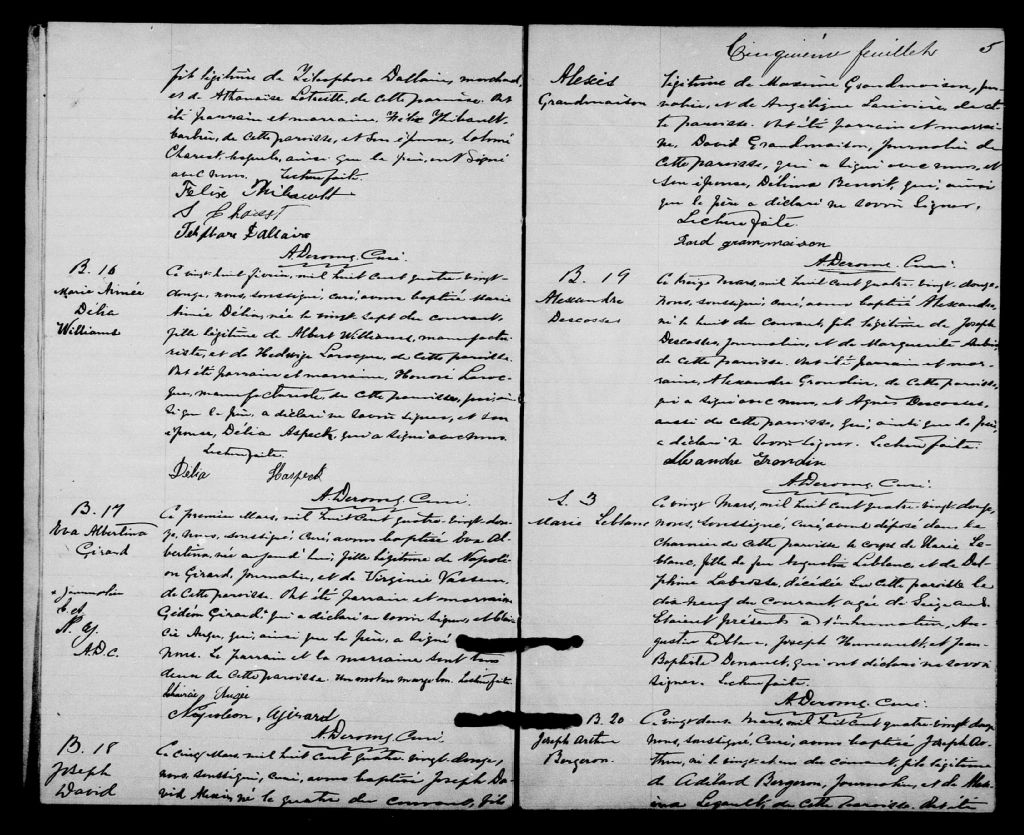 fils légitime de Télesphore Dallaire, marchand,
et de Athanaïse Latreille, de cette paroisse. Ont
été parrain et marraine, Félix Thibault,
barbier, de cette paroisse, et son épouse, Salomé
Charest, laquelle, ainsi que le père, ont signé
avec nous. Lecture faite.
Félixe Thibault
S Charest
Télesphore Dallaire
A. Derome, Curé.
B. 16
Marie Aimée
Délia
Williams
Ce vingt huit février, mil huit cent quatre vingt-
douze, nous, soussigné, curé, avons baptisé Marie
Aimée Délia, née le vingt sept du courant,
fille légitime de Albert Williams, manufactu-
riste, et de Hedwige Larocque, de cette paroisse.
Ont été parrain et marraine, Honoré Laroc-
que, manufacturiste, de cette paroisse, qui, ain-
si que le père, a déclaré ne savoir signer, et son
épouse, Délia Aspeck, qui a signé avec nous.
Lecture faite.
Délia Haspeck
A. Derome, Curé.
B. 17
Eva Albertina
Girard
x journalier
E. A.
N. G.
A. D. C.
Ce premier Mars, mil huit cent quatre-vingt-dou-
ze, nous, soussigné, Curé, avons baptisé Eva Al-
bertina, née aujourd'hui, fille légitime de Napolé-
on Girard, Journalier, et de Virginie
de cette paroisse. Ont été parrain et marraine
Gédéon Girard, qui a déclaré ne savoir signer, et
Auger, qui, ainsi que le père, a signé
nous. Le parrain et la marraine sont tous
deux de cette paroisse. Un mot en marge bon. Lecture faite
Augée
Napoleon, Girard
A. Derome, Curé.
B. 18
Joseph
David
Ce cinq Mars, mil huit cent quatre-vingt-douze,
nous, soussigné, curé, avons baptisé Joseph Da-
vid Alexis, né le quatre du courant, fils
Cinquième feuillet 5
Alexis
Grandmaison
légitime de Maxime Grandmaison, jour-
nalier, et de Angélique Larivière, de cet-
te paroisse. Ont été parrain et marrai-
ne, David Grandmaison, journalier de
cette paroisse, qui a signé avec nous, et
son épouse, Délima Benoit, qui, ainsi
que le père a déclaré ne savoir signer.
Lecture faite.
grammaison
A. Derome, Curé.
B. 19
Alexandre
Descosses
Ce treize Mars, mil huit cent quatre vingt, douze,
nous, soussigné, curé, avons baptisé Alexandre,
né le huit du courant, fils légitime de Joseph
Descosses, journalier, et de Marguerite Aubin,
de cette paroisse. Ont été parrain et mar-
raine, Alexandre Grondin, de cette paroisse,
qui a signé avec nous, et Agnès Descosses,
aussi de cette paroisse, qui, ainsi que le père,
a déclaré ne savoir signer. Lecture faite.
Alexandre Grondin
A. Derome, Curé.
S. 3
Marie Leblanc
Ce vingt Mars, mil huit cent quatre vingt, douze,
nous, soussigné, Curé, avons déposé dans le
charnier de cette paroisse le corps de Marie Le-
blanc, fille de feu Augustin Leblanc, et de Del-
phine Labrosse, décédée sur cette paroisse le
dix neuf du courant, agée de seize ans.
Etaient présents à l'inhumation, Au-
gustin Leblanc, Joseph Huneault, et Jean
Baptiste Denault, qui ont déclaré ne savoir
signer. Lecture faite.
A. Derome, Curé.
B. 20
Joseph Arthur
Bergeron.
Ce vingt deux Mars, mil huit cent quatre-vingt douze
nous, soussigné, Curé, avons baptisé Joseph Ar-
thur, né le vingt et un du courant, fils légitime
de Adélard Bergeron, Journalier, et de
Legault, de cette paroisse. Ont été